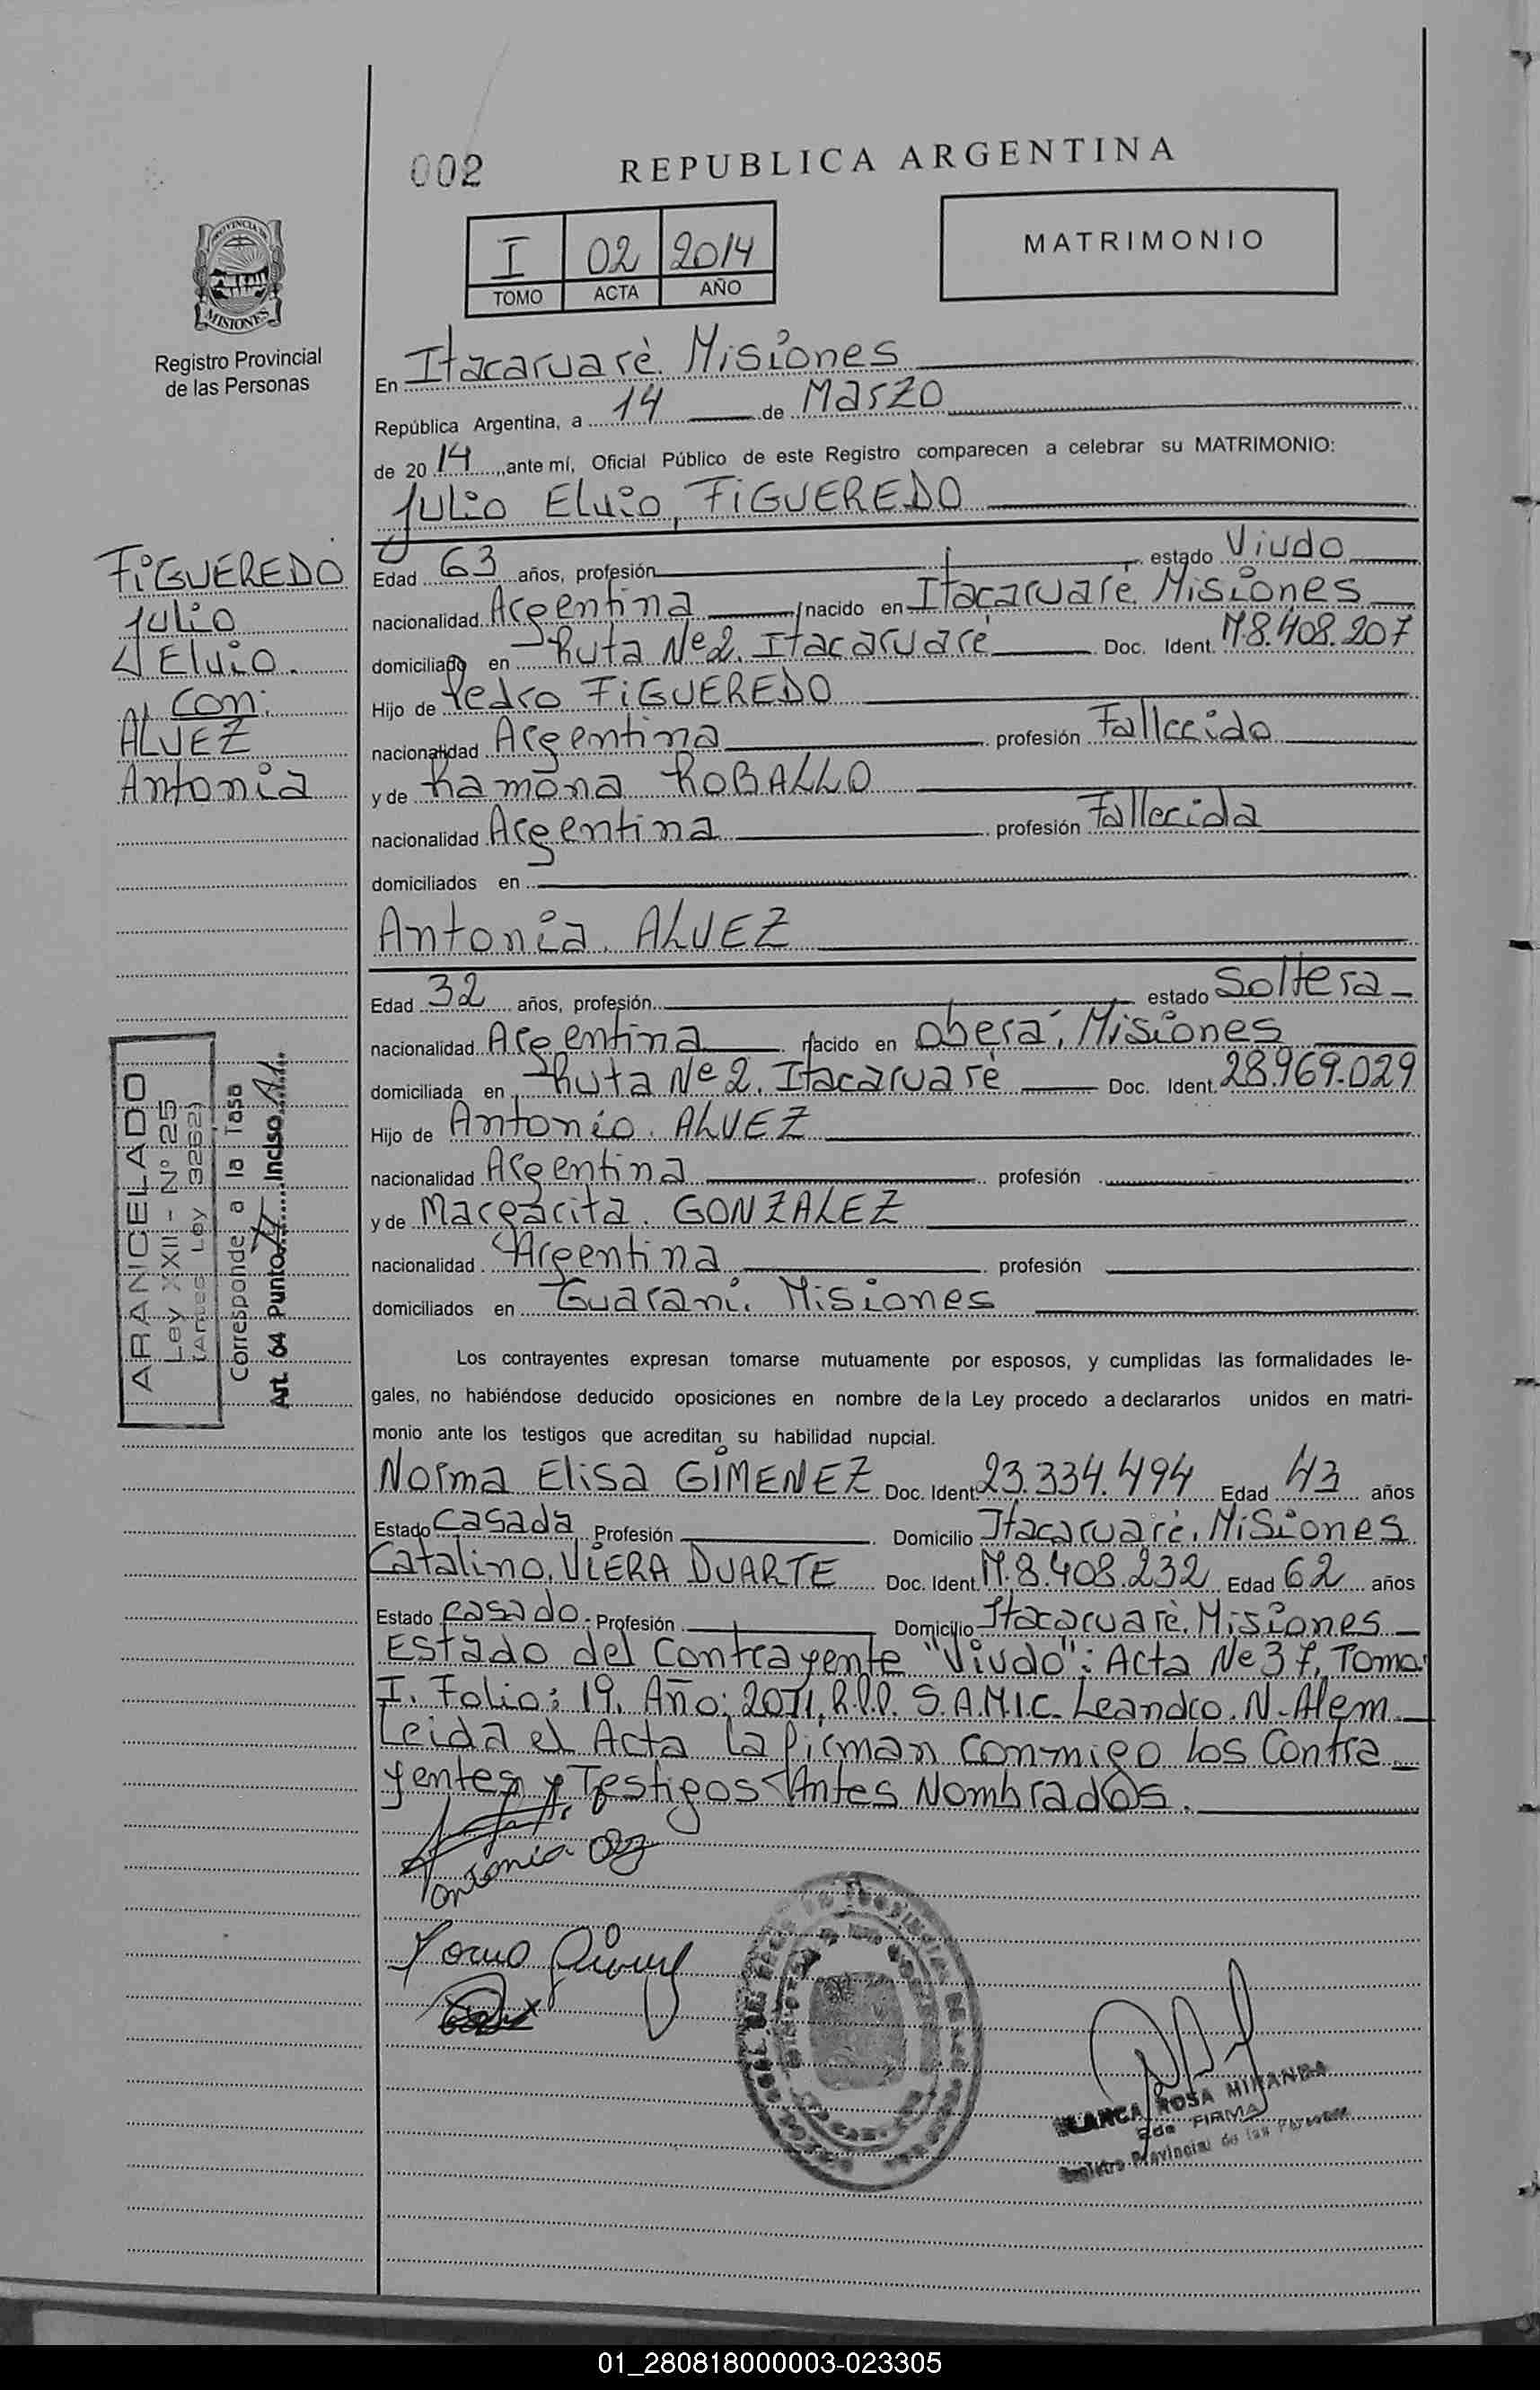 002
REPUBLICA ARGENTINA
I 02 2014
TOMO ACTA AÑO
MATRIMONIO
PROVINCIA DE
MISIONES
Registro Provincial
de las Personas
En Itacaruarè. Misiones
República Argentina, a 14 de Marzo
de 20 14, ante mí, Oficial Público de este Registro comparecen a celebrar su MATRIMONIO:
Julio Elvio, FIGUEREDO
FIGUEREDO
Julio
Elvio.
con:
ALVEZ
Antonia
Edad 63 años, profesión estado Viudo
nacionalidad Argentina nacido en Itacaruaré Misiones
domiciliado en Ruta Nº 2. Itacaruarè Doc. Ident. M.8.408.207
Hijo de Pedro FIGUEREDO
nacionalidad Argentina profesión Fallecido
y de Ramona ROBALLO
nacionalidad Argentina profesión Fallecida
domiciliados en
Antonia. ALVEZ
Edad 32 años, profesión estado Soltera
nacionalidad Argentina nacido en Oberá, Misiones
domiciliada en Ruta Nº 2. Itacaruarè Doc. Ident. 28.969.029
Hijo de Antonio. ALVEZ
nacionalidad Argentina profesión
y de Margarita. GONZALEZ
nacionalidad Argentina profesión
domiciliados en Guarani. Misiones
ARANCELADO
Ley XXII - Nº 25
(Antes Ley 3262)
Corresponde a la Tasa
Art. 64 Punto Inciso A1
Los contrayentes expresan tomarse mutuamente por esposos, y cumplidas las formalidades le-
gales, no habiéndose deducido oposiciones en nombre de la Ley procedo a declararlos unidos en matri-
monio ante los testigos que acreditan su habilidad nupcial.
Norma Elisa GIMENEZ Doc. Ident. 23.334.494 Edad 43 años
Estado Casada Profesión Domicilio Itacaruarè. Misiones
Catalino. VIERA DUARTE Doc. Ident. M.8.408.232 Edad 62 años
Estado casado. Profesión Domicilio Itacaruarè. Misiones
Estado del Contrayente "Viudo": Acta Nº 37, Tomo:
I. Folio: 19. Año: 2011, R.P.P. S.A.M.I.C. Leandro. N. Alem.
Leida el Acta la firman conmigo los Contra
yentes y Testigos Antes Nombrados.
Antonia
BLANCA ROSA MIRANDA
2da FIRMA
Registro Provincial de las Personas
01_280818000003-023305